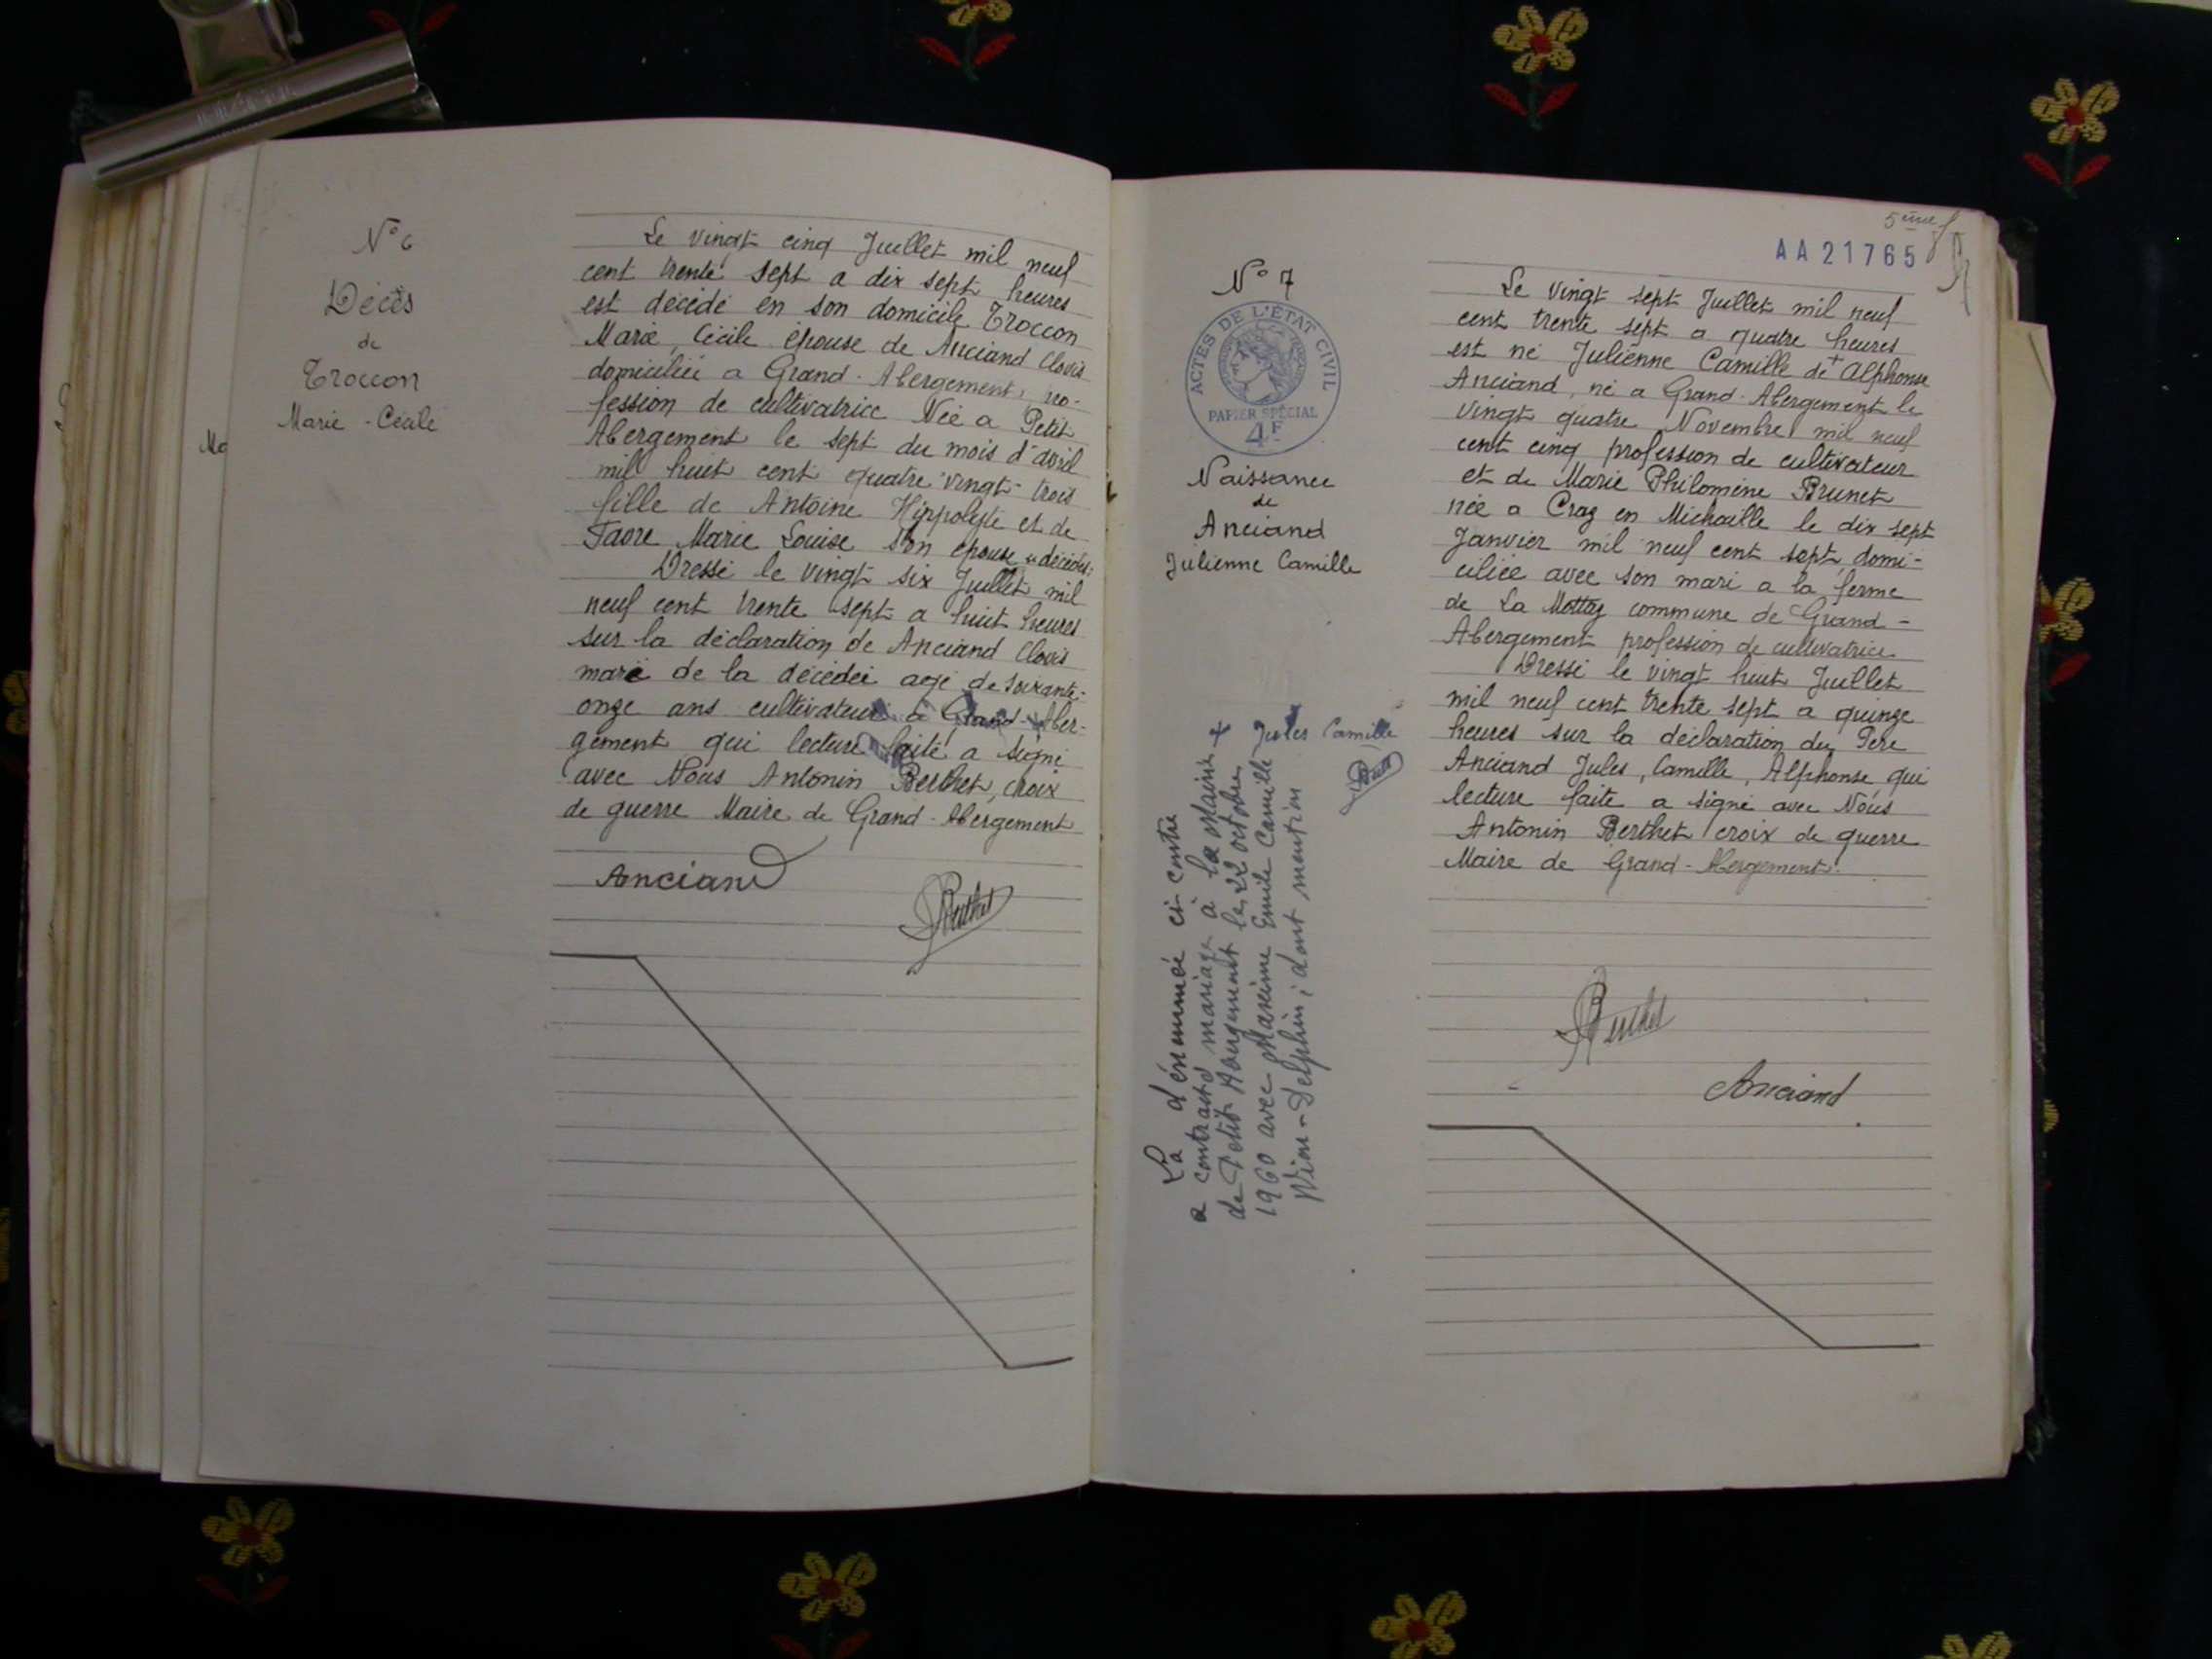 N° 6
Décès
de
Troccon
Marie - Cécile
Le vingt cinq Juillet mil neuf
cent trente sept a dix sept heures
est décédé en son domicile Troccon
Marie, Cécile épouse de Anciand Clovis
domiciliée a Grand - Abergement, pro-
fession de cultivatrice Née a Petit
Abergement le sept du mois d'avril
mil huit cent quatre vingt - trois
fille de Antoine Hippolyte et de
Favre Marie Louise son épouse décédés.
Dressé le vingt six Juillet mil
neuf cent trente sept a huit heures
sur la déclaration de Anciand Clovis
mari de la décédée agé de soixante-
onze ans cultivateur a Grand - Aber-
gement qui lecture faite a signé
avec Nous Antonin Berthet, croix
de guerre Maire de Grand - Abergement
Anciand
Berthet
Ma
5ème
AA 21765
N° 7
ACTES DE L'ÉTAT CIVIL
PAPIER SPÉCIAL
4F
Naissance
de
Anciand
Julienne Camille
+ Jules Camille
Berthet
La dénommée ci contre
a contracté mariage à la Mairie
de Petit Abergement le 22 octobre
1960 avec Maxime Emile Camille
Delphin ; dont mention
Le vingt sept Juillet mil neuf
cent trente sept a quatre heures
est né Julienne Camille de + Alphonse
Anciand, né a Grand - Abergement le
vingt quatre Novembre mil neuf
cent cinq profession de cultivateur
et de Marie Philomène Brunet
née a Craz en Michaille le dix sept
Janvier mil neuf cent sept, domi-
ciliée avec son mari a la ferme
de La Mottaz commune de Grand -
Abergement profession de cultivatrice
Dressé le vingt huit Juillet
mil neuf cent trente sept a quinze
heures sur la déclaration du Père
Anciand Jules, Camille, Alphonse qui
lecture faite a signé avec Nous
Antonin Berthet croix de guerre
Maire de Grand - Abergement.
Berthet
Anciand